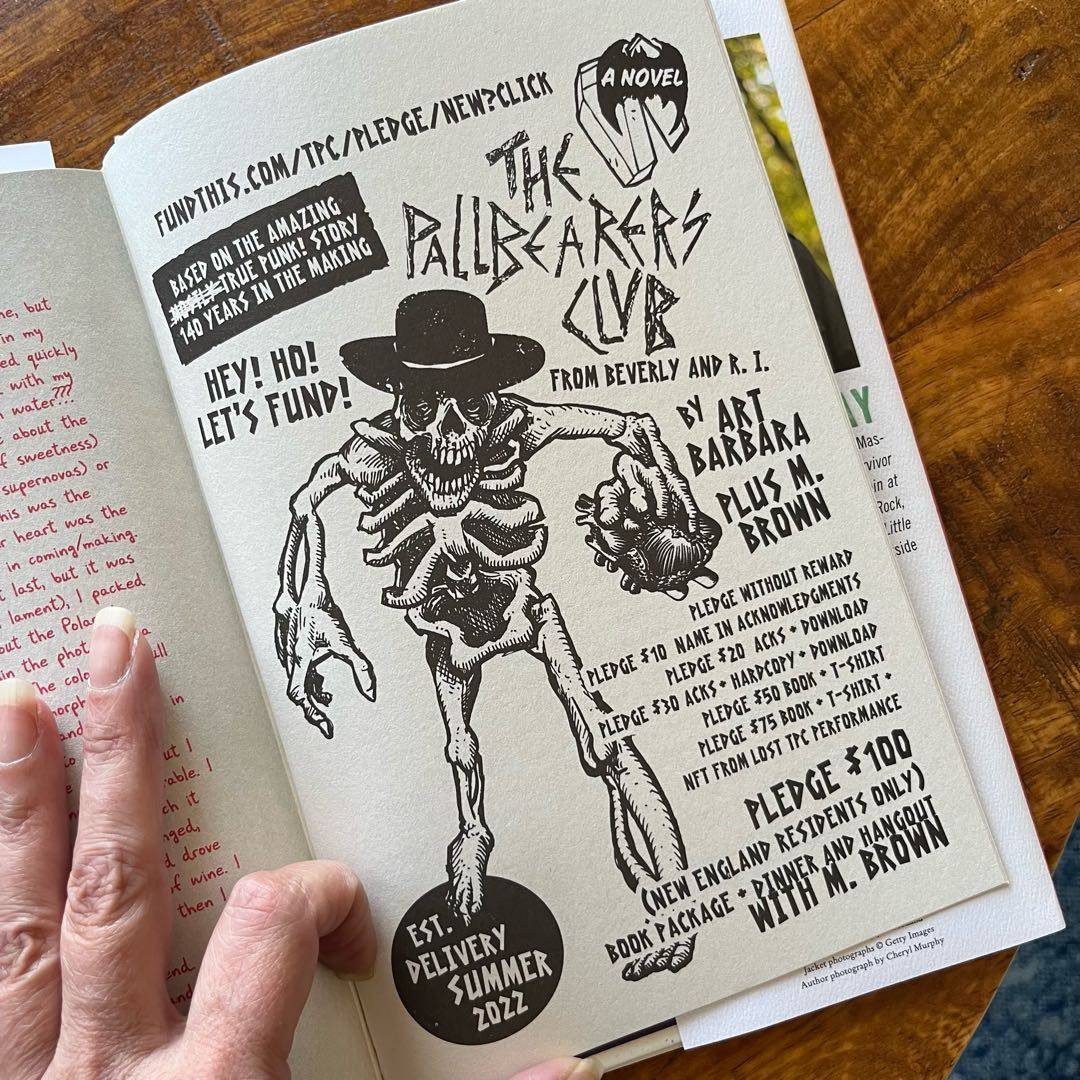 ne, but
in my
ed quickly
t with my
n water???
e about the
f sweetness)
supernovas) or
his was the
r heart was the
in coming/making.
t last, but it was
lament), I packed
out the Pola
in the phot
a
he colo
ull
morph
and
in
to
ut I
iable. I
ch it
nged,
d drove
of wine. I
then I
end
and
FUNDTHIS.COM/TPC/PLEDGE/NEW?CLICK
A NOVEL
BASED ON THE AMAZING
TRUE PUNK! STORY
140 YEARS IN THE MAKING
THE
PALLBEARERS
CLUB
HEY! HO!
LET'S FUND!
FROM BEVERLY AND R. I.
BY ART
BARBARA
PLUS M.
BROWN
PLEDGE WITHOUT REWARD
PLEDGE $10 NAME IN ACKNOWLEDGMENTS
PLEDGE $20 ACKS + DOWNLOAD
PLEDGE $30 ACKS + HARDCOPY + DOWNLOAD
PLEDGE $50 BOOK + T-SHIRT
PLEDGE $75 BOOK + T-SHIRT +
NFT FROM LOST TPC PERFORMANCE
PLEDGE $100
(NEW ENGLAND RESIDENTS ONLY)
BOOK PACKAGE + DINNER AND HANGOUT
WITH M. BROWN
EST.
DELIVERY
SUMMER
2022
AY
Mas-
rvivor
in at
Rock,
Little
side
Jacket photographs © Getty Images
Author photograph by Cheryl Murphy